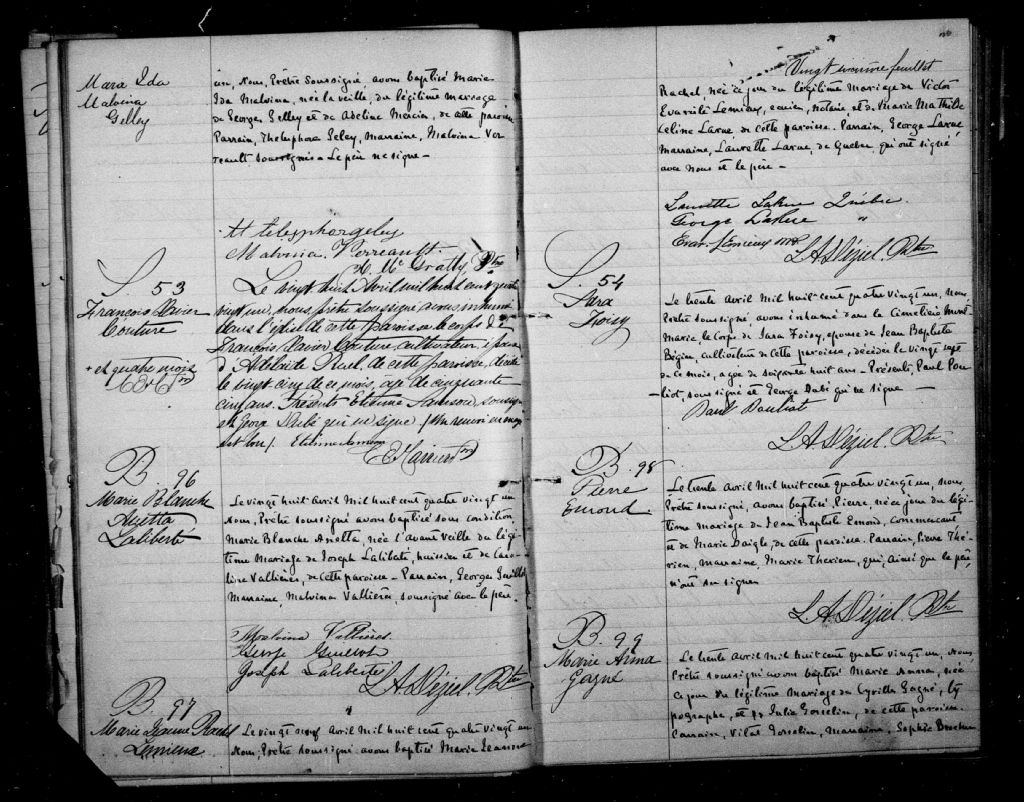 Mara Ida
Malvina
Gelley
un, Nous, Prêtre soussigné avons baptisé Marie
Ida Malvina, née la veille, du légitime mariage
de Georges Gelley et de Adeline Mercier, de cette paroisse
Parrain, Thelesphore Geley, Marraine, Malvina Ver
reault soussignés Le père ne signe —
telesphorgeley
Malvina Verreault
Ptre
S. 53
François Xavier
Couture
+ et quatre mois
Le vingt huit Avril mil huit cent quatre
vingt un, nous, prêtre soussigné avons inhumé
dans l'église de cette paroisse le corps de
François Xavier Couture, cultivateur, époux
d'Adelaide Ruel, de cette paroisse, décédé
le vingt cinq de ce mois, agé de cinquante
cinq ans. Présents Etienne Samson, soussigné
et George Dubé qui ne signe (Un renvoi en marge
est bon). Etienne Samson
B. 96
Marie Blanche
Arietta
Laliberté
Le vingt huit Avril Mil huit cent quatre vingt un
Nous, Prêtre soussigné avons baptisé sous condition
Marie Blanche Arietta, née l'avant veille du légi
time Mariage de Joseph Laliberté, huissier et de Caro
line Vallières, de cette paroisse — Parrain, Georges Guillot
Marraine, Malvina Vallières, soussigné avec le père.
Malvina Vallières
George Guillot
Joseph Laliberté
L A Déziel. Ptre
B. 97
Marie Jeanne Rachel
Lemieux
Le vingt neuf Avril mil huit cent quatre vingt un
Nous, Prêtre soussigné avons baptisé Marie Jeanne
Vingt feuillet
Rachel, née ce jour du légitime Mariage de Victor
Evariste Lemieux, écuier, notaire et D. Marie Mathilde
Celine Larue de cette paroisse. Parrain, George Larue
Marraine, Laurette Larue, de Quebec qui ont signé
avec nous et le père —
Laurette LaRue Québec.
George LaRue "
Evar. Lemieux
L A Déziel. Ptre
S. 54
Sara
Foisy
Le trente Avril Mil huit cent quatre vingt un, nous,
Prêtre soussigné, avons inhumé dans le Cimetière Mont
Marie, le Corps de Sara Foisy, épouse de Jean Baptiste
Bégin, cultivateur de cette paroisse, décédée le vingt sept
de ce mois, agée de soixante huit ans — Présents, Paul Pou-
liot, soussigné et George Dubé qui ne signe —
Paul Pouliot
L A Déziel. Ptre
B. 98
Pierre
Emond
Le trente Avril Mil huit cent quatre vingt un, nous,
Prêtre soussigné, avons baptisé, Pierre, né ce jour du légi
time mariage de Jean Baptiste Emond, commerçant
et de Marie Daigle, de cette paroisse. Parrain, Pierre Thé
rien, marraine, Marie Therien, qui, ainsi que le père,
n'ont su signer
L A Déziel. Ptre
B. 99
Marie Anna
Gagné
Le trente Avril Mil huit cent quatre vingt un, Nous,
Prêtre soussigné avons baptisé Marie Anna, née
ce jour du légitime mariage de Cyrille Gagné, ty
pographe, et de Julie Gosselin, de cette paroisse.
Parrain, Vital Gosselin, Marraine, Sophie